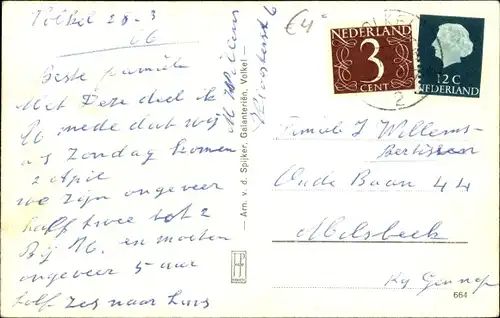 Volkel 28-3
66
Beste familie
Met Deze deel ik
U mede dat wij
a s Zondag komen
2 April
we zijn ongeveer
half twee tot 2
Bij U. en moeten
ongeveer 5 uur
half zes naar huis
M Willems
Kloosterstr 6
— Arn. v. d. Spijker, Galanteriën, Volkel —
€4
NEDERLAND
3
CENT
2
12 C
NEDERLAND
Familie J Willems-
Oude Baan 44
Milsbeek
Bij Gennep
664